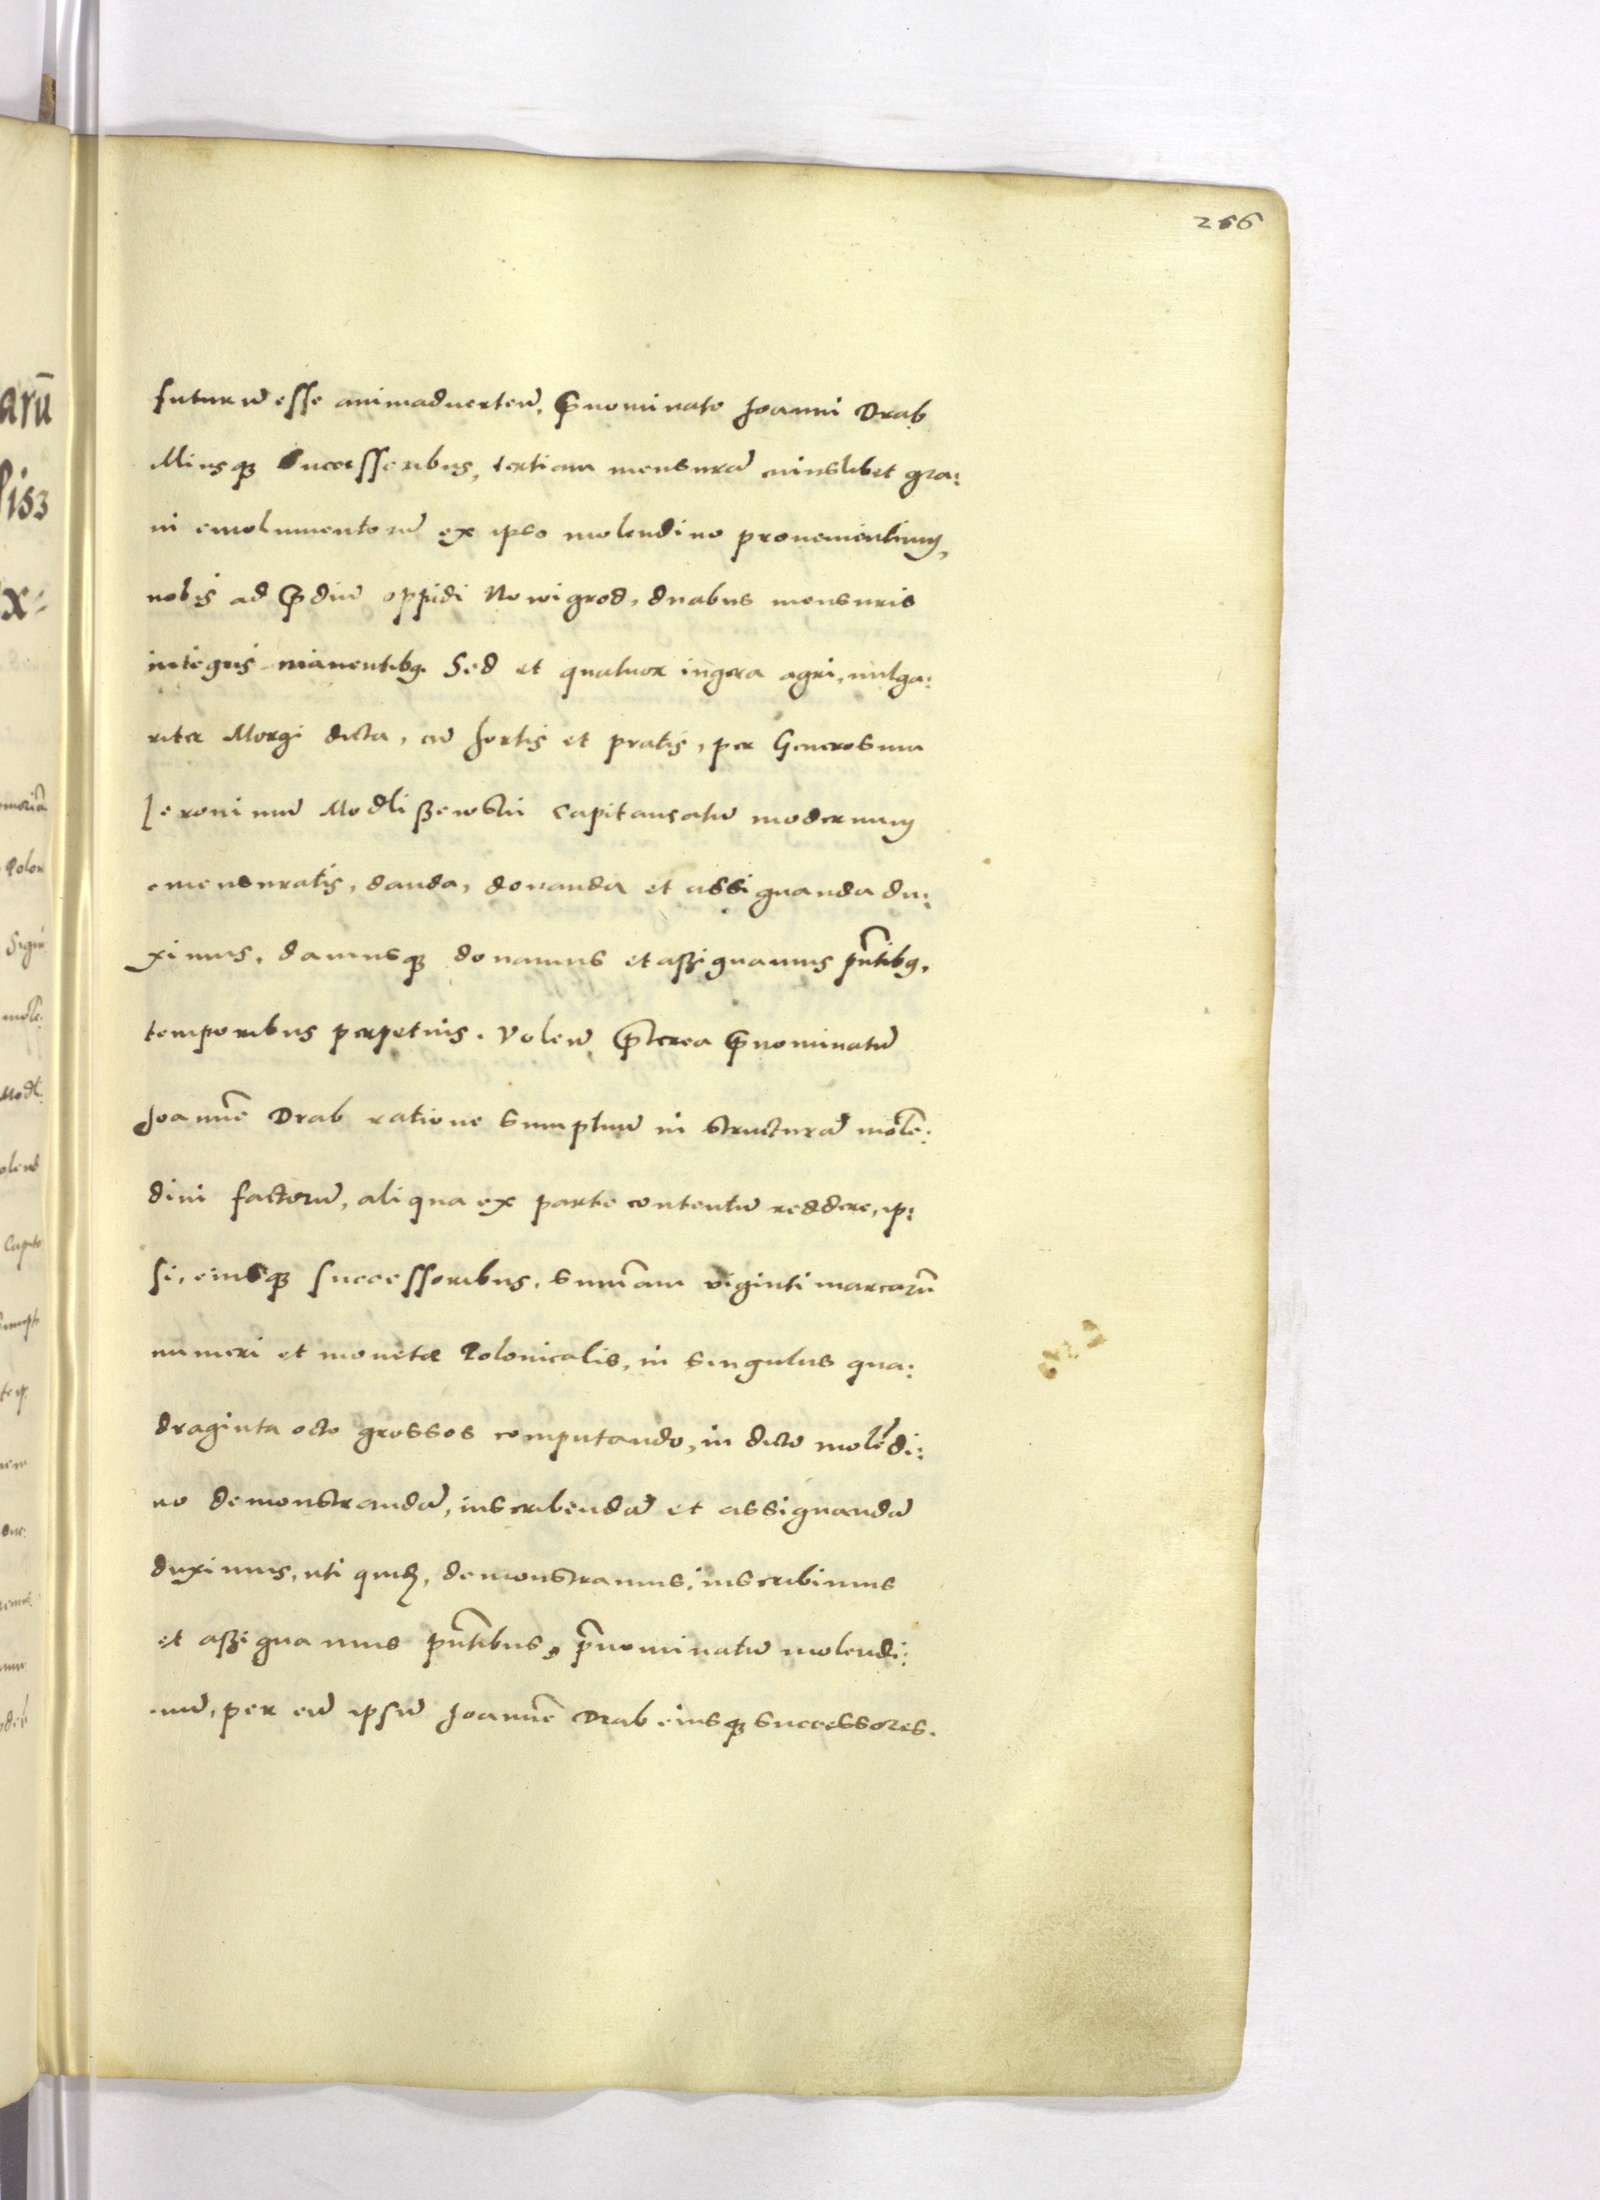 266
futurũ esse animaduerteñ, p̃nominato Joanni Drab
illiusq3 Successoribus, tertiam mensurã cuiuslibet gra:
ni emolumentorũ ex ipso molendino prouenientium,
nobis ad p̃diũ oppidi Nowigrod, duabus mensuris
integris manentib9. Sed et quatuor iugera agri, uulga:
riter Morgi dicta, cũ hortis et pratis, per Generosum
Jeronimũ Modlißewski Capitaneatũ modernum
emensuratis, danda, donanda et assignanda du:
ximus, damusq3 donamus et aßignamus pñtib9,
temporibus perpetuis. Voleñ p̃terea p̃nominatũ
Joannẽ Drab ratione sumptuũ in structurã molẽ:
dini factorũ, aliqua ex parte contentũ reddere, ip:
si, eiusq3 successoribus, sum̃am viginti marcarũ
numeri et monetæ Polonicalis, in singulas qua:
draginta octo grossos computando, in dicto molẽdi:
no demonstrandã, inscribendã et assignandã
duximus, uti quidẽ, demonstramus, inscribimus
et aßignamus pñtibus, p̃nominatũ molendi:
nũ, per eũ ipsũ Joannẽ Drab eiusq3 successores.